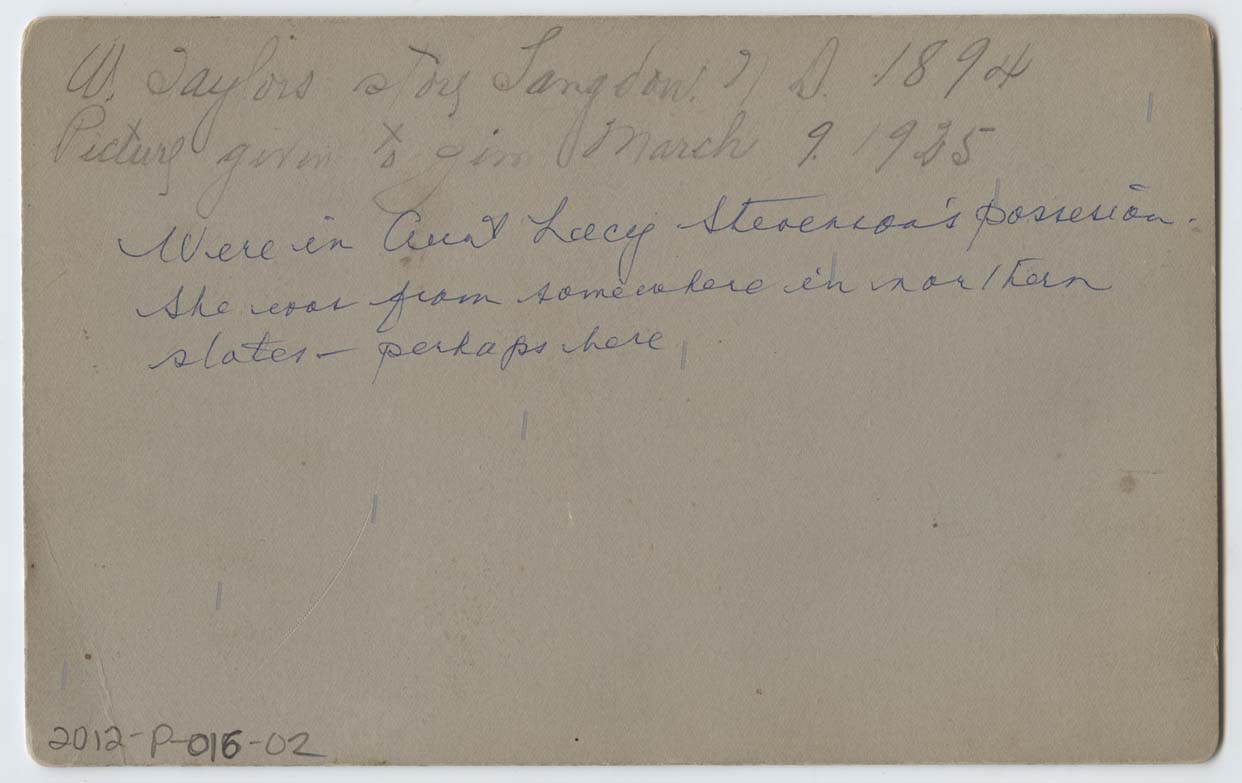 W. Taylors store Langdon. N D. 1894
Picture given to Jim March 9. 1925
Were in Aunt Lucy Stevenson's possesion.
She was from somewhere in northern
states - perhaps here
2012-P-016-02